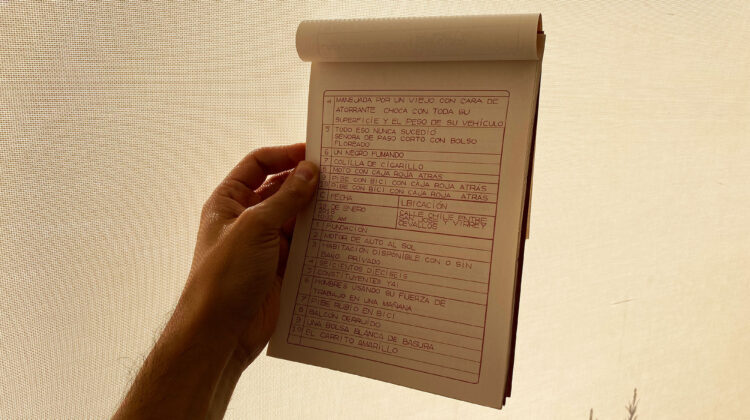 4 MANEJADA POR UN VIEJO CON CARA DE
ATORRANTE CHOCA CON TODA SU
SUPERFICIE Y EL PESO DE SU VEHÍCULO
5 TODO ESO NUNCA SUCEDIÓ
SEÑORA DE PASO CORTO CON BOLSO
FLOREADO
6 UN NEGRO FUMANDO
7 COLILLA DE CIGARILLO
8 MOTO CON CAJA ROJA ATRÁS
9 PIBE CON BICI CON CAJA ROJA ATRÁS
PIBE CON BICI CON CAJA ROJA ATRÁS
FECHA UBICACIÓN
DE ENERO CALLE CHILE ENTRE
2018 SAN JOSÉ Y VIRREY
AM CEVALLOS
1 FUNDACIÓN
2 MOTOR DE AUTO AL SOL
3 HABITACIÓN DISPONIBLE CON O SIN
BAÑO PRIVADO
4 SEICIENTOS DIECISEIS
5 CONSTITUYENTES YA!
6 HOMBRES USANDO SU FUERZA DE
TRABAJO EN UNA MAÑANA
7 PIBE RUBIO EN BICI
8 BALCÓN DERRUIDO
9 UNA BOLSA BLANCA DE BASURA
10 EL CARRITO AMARILLO